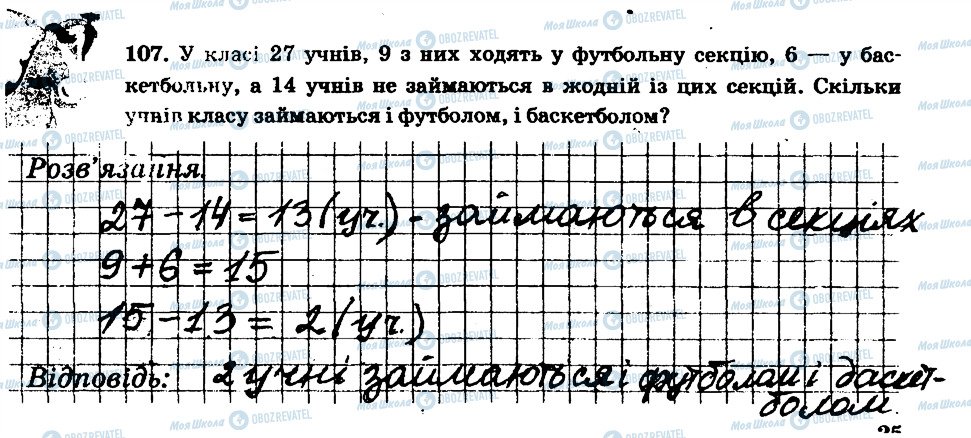 107. У класі 27 учнів, 9 з них ходять у футбольну секцію, 6 — у бас-
кетбольну, а 14 учнів не займаються в жодній із цих секцій. Скільки
учнів класу займаються і футболом, і баскетболом?
Розв'язання.
27 - 14 = 13 (уч.) - займаються в секціях
9 + 6 = 15
15 - 13 = 2 (уч.)
Відповідь: 2 учні займаються і футболом і баскет-
болом.
25